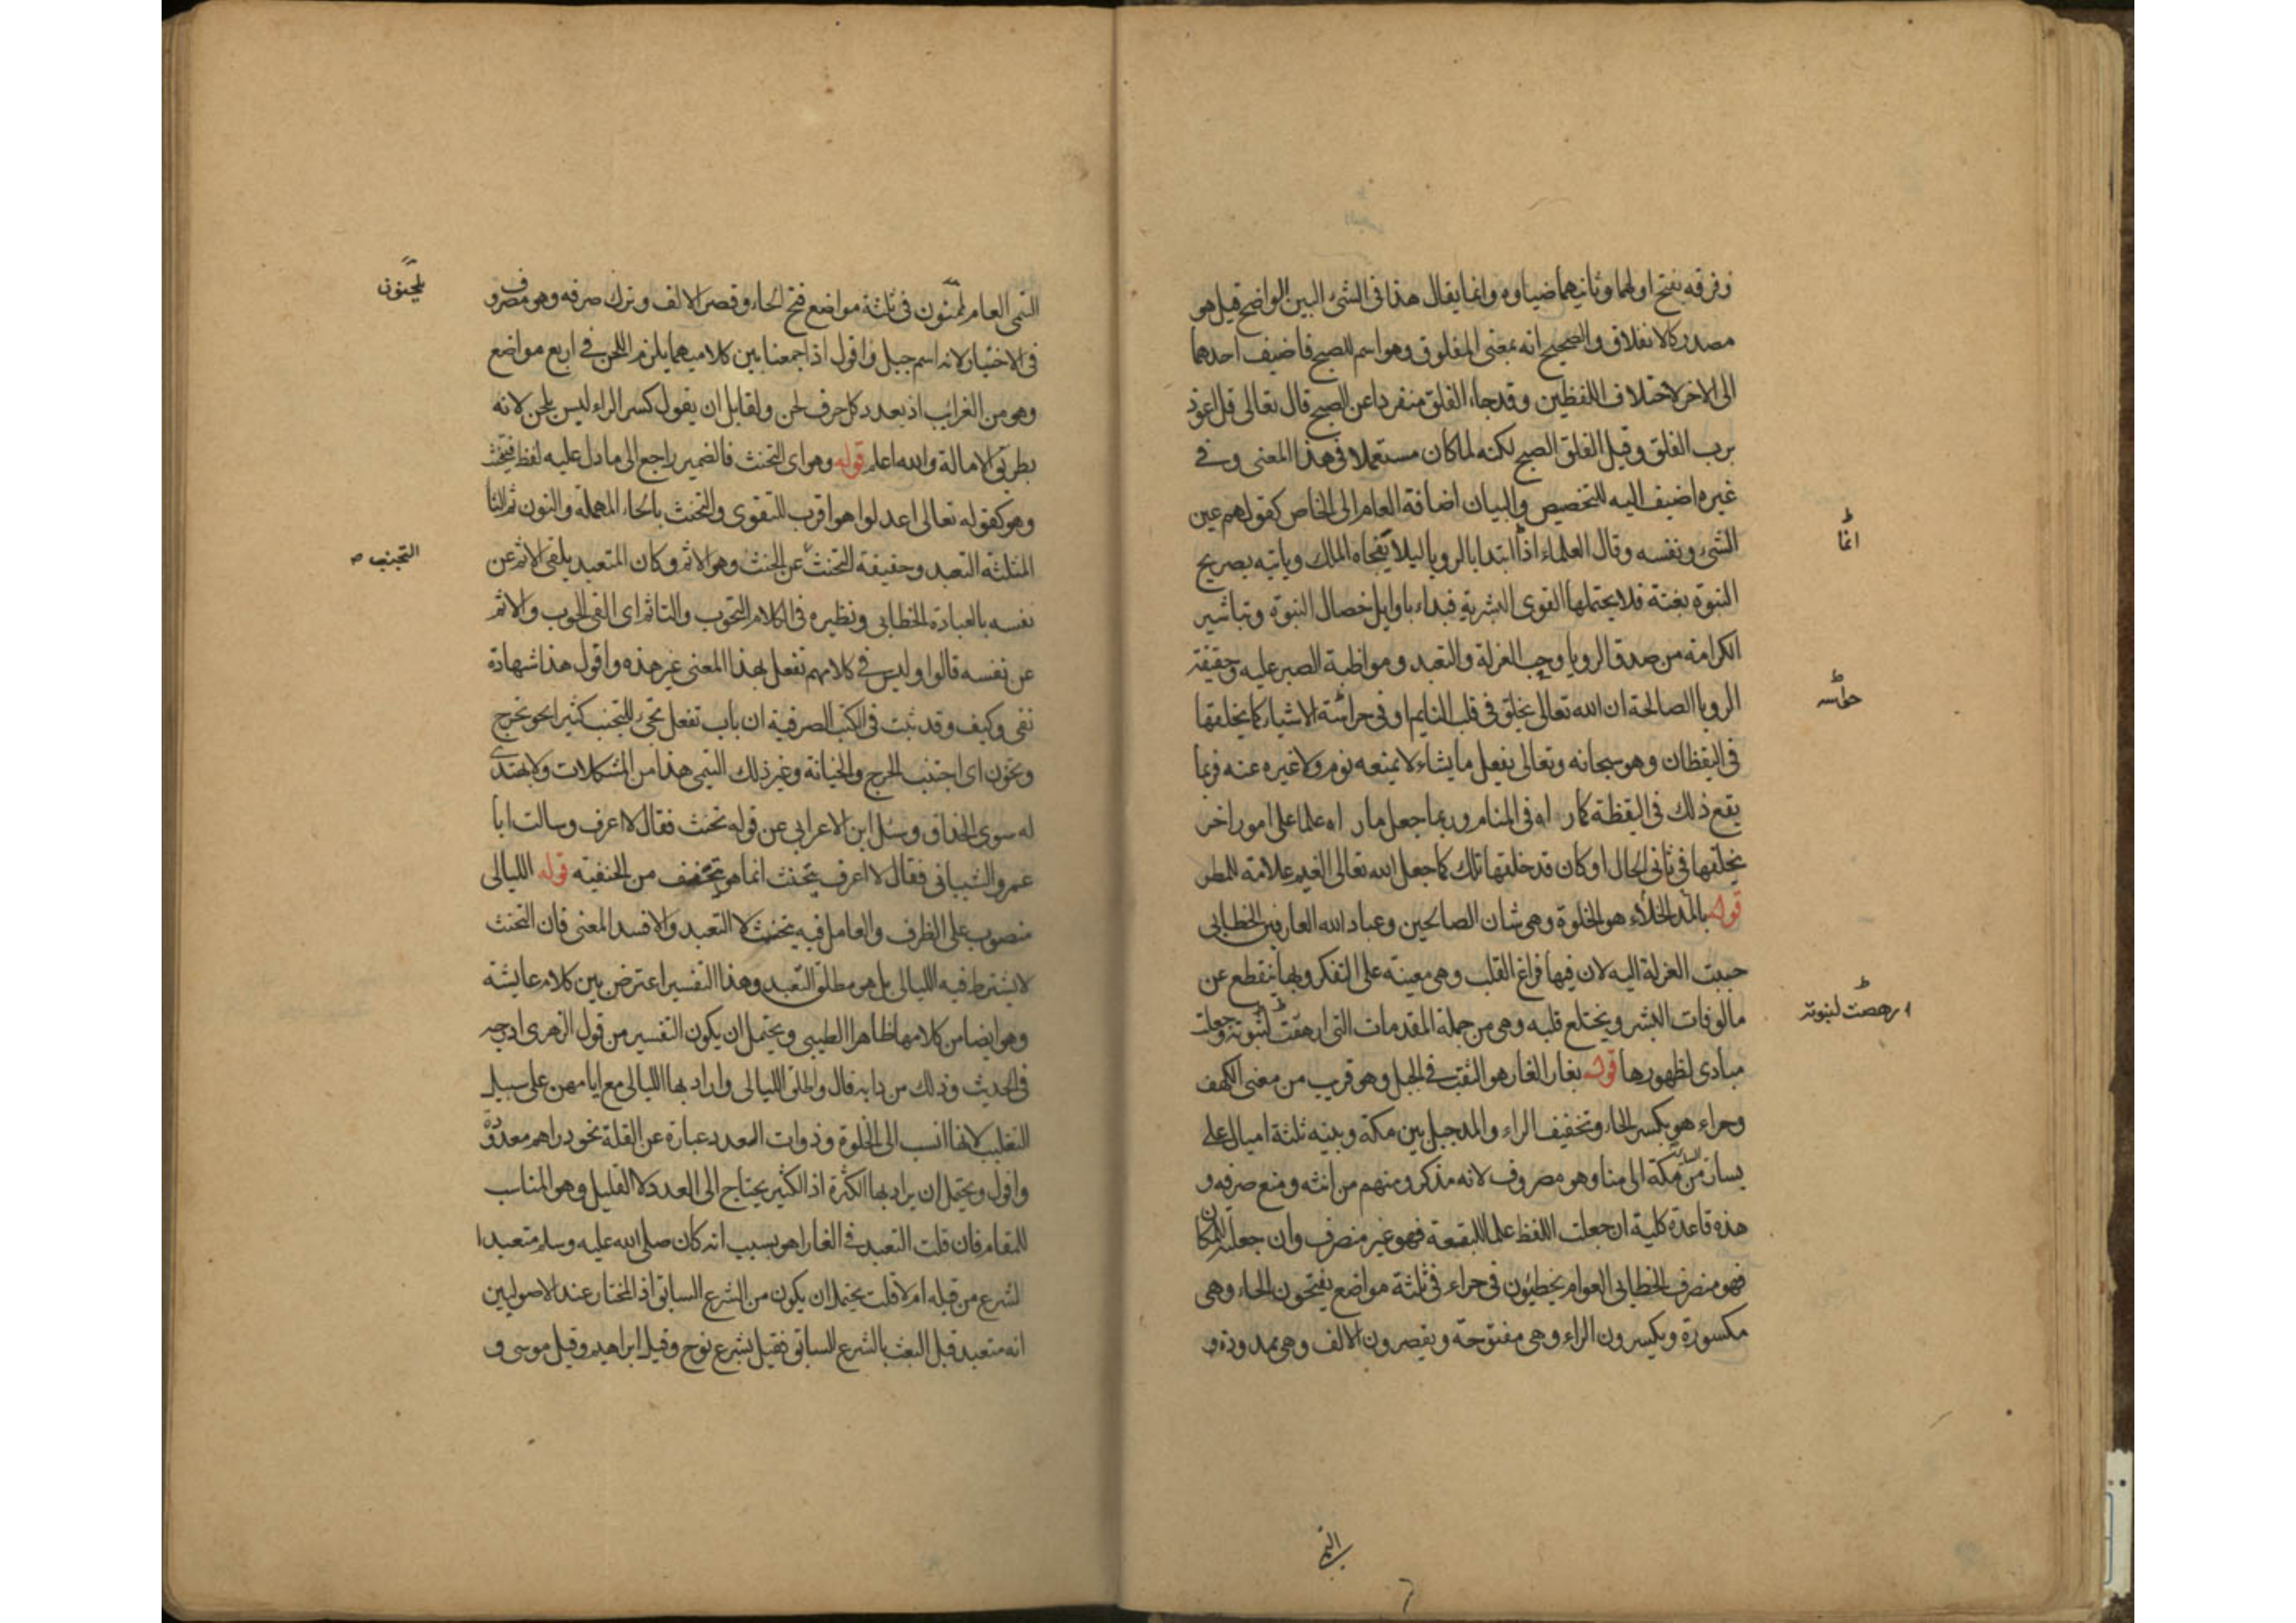 وفرقه بفتح اولهما وثانيهما ضياوه وانما يقال هذا فى الشئ البين الواضح قيل هو
مصدر كالانفلاق والصحيح انه بمعنى المفلوق وهو اسم للصبح فاضيف احدهما
الى الاخر لاختلاف اللفظين وقد جاء الفلق منفردا عن الصبح قال تعالى قل اعوذ
برب الفلق وقيل الفلق الصبح لكنه لما كان مستعملا فى هذا المعنى وفى
غيره اضيف اليه للتخصيص والبيان اضافة العام الى الخاص كقولهم عين
الشئ ونفسه وقال العلماء اذا ابتدا بالرويا ليلا يفجاه الملك وياتيه بصريح
انما
النبوة بغتة فلا يحتملها القوى البشرية فبداء باوايل خصال النبوة وتباشير
الكرامة من صدق الرويا وحب العزلة والتعبد ومواظبة الصبر عليه وحقيقة
الرويا الصالحة ان الله تعالى يخلق فى قلب النايم او فى حراسة الاشياء كما يخلقها
حواسه
فى اليقظان وهو سبحانه وتعالى يفعل ما يشاء لا يمنعه نوم ولا غيره عنه فربما
يقع ذلك فى اليقظة كما راه فى المنام وربما جعل ما راه علما على امور اخر
يخلقها فى ثانى الحال او كان قد خلقها تلك كما جعل الله تعالى الغيم علامة للمطر
قوله بالمد الخلاء هو الخلوة وهى شان الصالحين وعباد الله العارفين الخطابى
حببت العزلة اليه لان فيها فراغ القلب وهى معينة على التفكر وبها ينقطع عن
مالوفات البشر ويختلع قلبه وهى من جملة المقدمات التى ارهقت لنبوته وجعلت
ارهصت لنبوته
مبادى لظهورها قوله بغار الغار هو النقب فى الجبل وهو قريب من معنى الكهف
وحراء هو بكسر الحاء وتخفيف الراء والمد جبل بين مكة وبينه ثلثة اميال على
يسار من مكة الى منا وهو مصروف لانه مذكر ومنهم من انثه ومنع صرفه و
هذه قاعدة كلية ان جعلت اللفظ علما للبقعة فهو غير منصرف وان جعلته للمكان
فهو منصرف الخطابى العوام يخطيون فى حراء فى ثلثة مواضع يفتحون الحاء وهى
مكسورة ويكسرون الراء وهى مفتوحة ويقصرون الالف وهى ممدودة و
التيمى
التيمى العام يلحنون فى ثلثة مواضع فتح الحاء وقصر الالف وترك صرفه وهو مصروف
يلحنون
فى الاختيار لانه اسم جبل واقول اذا جمعنا بين كلاميهما يلزم اللحن فى اربع مواضع
وهو من الغرايب اذ بعدد كل حرف لحن ولقايل ان يقول كسر الراء ليس بلحن لانه
بطريق الامالة والله اعلم قوله وهو اى التحنث فالضمير راجع الى ما دل عليه لفظ فيتحنث
وهو كقوله تعالى اعدلوا هو اقرب للتقوى والتحنث بالحاء المهملة والنون ثم الثا
المثلثة التعبد وحقيقة التحنث عن الحنث وهو الاثم وكان المتعبد يلقى الاثم عن
التجنب
نفسه بالعبادة الخطابى ونظيره فى الكلام التحوب والتاثم اى القى الحوب والاثم
عن نفسه قالوا وليس فى كلامهم تفعل بهذا المعنى غير هذه واقول هذا شهادة
نفى وكيف وقد ثبت فى الكتب الصرفية ان باب تفعل تجئ للتجنب كثيرا نحو تحرج
وتخون اى اجتنب الحرج والخيانة وغير ذلك التيمى هذا من المشكلات ولا يهتدى
له سوى الحذاق وسئل ابن الاعرابى عن قوله تحنث فقال لا اعرف وسالت ابا
عمرو الشيبانى فقال لا اعرف يتحنث انما هو يتحنف من الحنفية قوله الليالى
منصوب على الظرف والعامل فيه يتحنث لا التعبد والا فسد المعنى فان التحنث
لا يشترط فيه الليالى بل هو مطلق التعبد وهذا التفسير اعترض بين كلام عايشة
وهو ايضا من كلامها ظاهرا الطيبى ويحتمل ان يكون التفسير من قول الزهرى ادرجه
فى الحديث وذلك من دابه قال واطلق الليالى واراد بها الليالى مع ايامهن على سبيل
التغليب لانها انسب الى الخلوة وذوات العدد عبارة عن القلة نحو دراهم معدودة
واقول ويحتمل ان يراد بها الكثرة اذ الكثير يحتاج الى العدد لا القليل وهو المناسب
للمقام فان قلت التعبد فى الغار اهو بسبب انه كان صلى الله عليه وسلم متعبدا
لشرع من قبله ام لا قلت يحتمل ان يكون من الشرع السابق اذ المختار عند الاصوليين
انه متعبد قبل البعث بالشرع السابق فقيل بشرع نوح وقيل ابراهيم وقيل موسى و